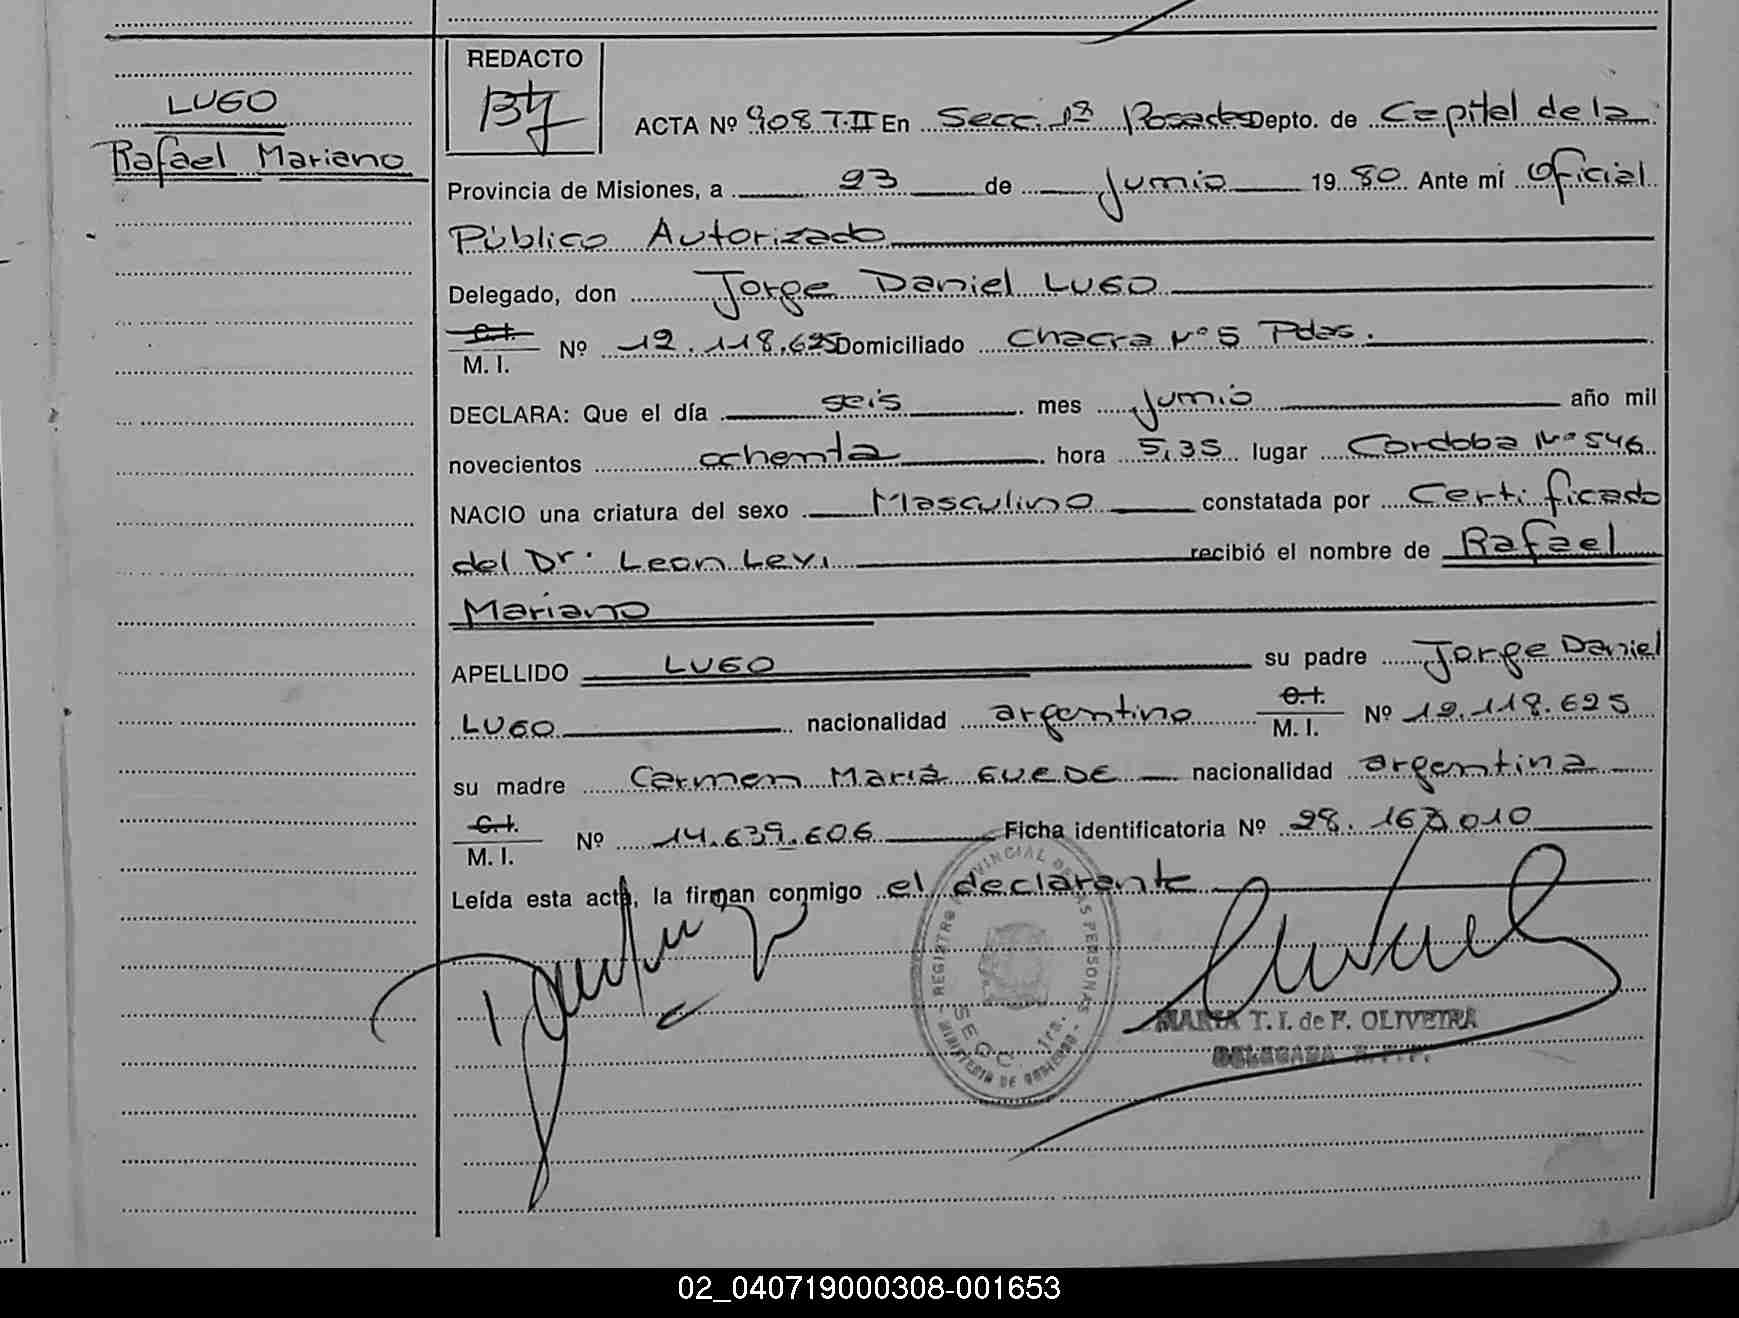 LUGO
Rafael Mariano
REDACTO
ACTA Nº 908 T.II En Secc. 1ª Posadas Depto. de Capital de la
Provincia de Misiones, a 23 de Junio 1980 Ante mí Oficial
Público Autorizado
Delegado, don Jorge Daniel LUGO
C.I.
M. I. Nº 12.118.625 Domiciliado Chacra Nº 5 Pdas.
DECLARA: Que el día seis mes Junio año mil
novecientos ochenta hora 5,35 lugar Cordoba Nº 546
NACIO una criatura del sexo Masculino constatada por Certificado
del Dr. Leon Levi recibió el nombre de Rafael
Mariano
APELLIDO LUGO su padre Jorge Daniel
LUGO nacionalidad argentino C.I. M. I. Nº 12.118.625
su madre Carmen María GUEDE nacionalidad argentina
C.I.
M. I. Nº 14.639.606 Ficha identificatoria Nº 28.16 .010
Leída esta acta, la firman conmigo el declarente
REGISTRO PROVINCIAL DE LAS PERSONAS
SECC. 1ra.
- MINISTERIO DE GOBIERNO -
MARIA T. I. de F. OLIVEIRA
DELEGADA R.P.P.
02_040719000308-001653